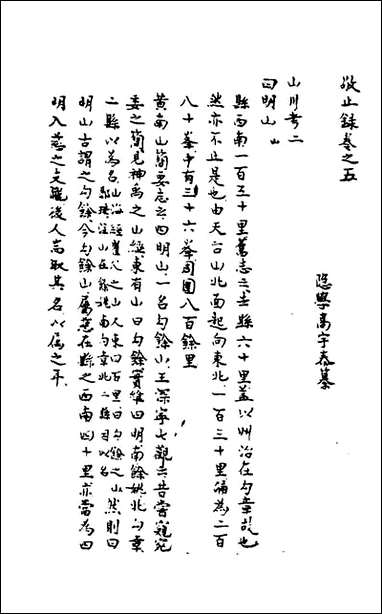 敬止錄卷之五
隱學高宇泰纂
山川考二
四明山
縣西南一百三十里舊志云去縣六十里蓋以州治在勾章故也
然亦不止是也由天台山北面起向東北一百三十里涌為二百
八十峯中有三十六峯周圍八百餘里
黃南山簡要志云四明山一名勾餘山王深寧七觀云昔嘗窺宛
委之簡見神禹之山經東有山曰勾餘實維四明南餘姚北勾章
二縣以為名山海經
明山古謂之勾餘今勾餘山舊志在縣之西南四十里亦當為四
明入慈之支隴後人耑取其名以屬之耳